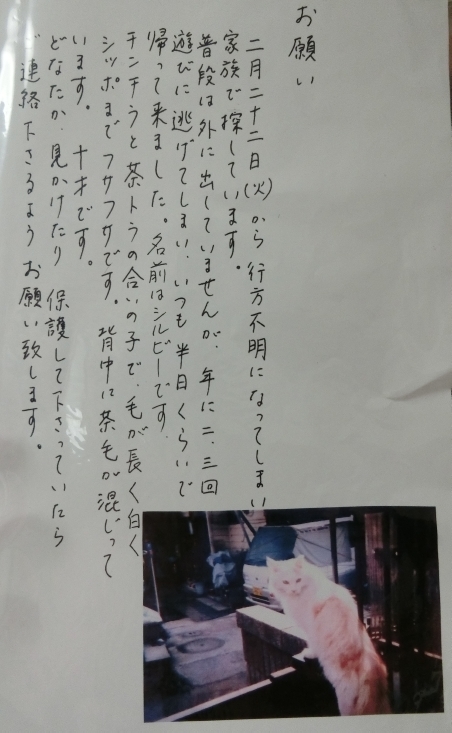 お願い
二月二十二日(火)から行方不明になってしまい
家族で探しています。
普段は外に出していませんが、年に二、三回
遊びに逃げてしまい、いつも半日くらいで
帰って来ました。名前はシルビーです。
チンチラと茶トラの合いの子で、毛が長く白く
シッポまでフサフサです。背中に茶毛が混じって
います。十才です。
どなたか、見かけたり保護して下さっていたら
ご連絡下さるようお願い致します。